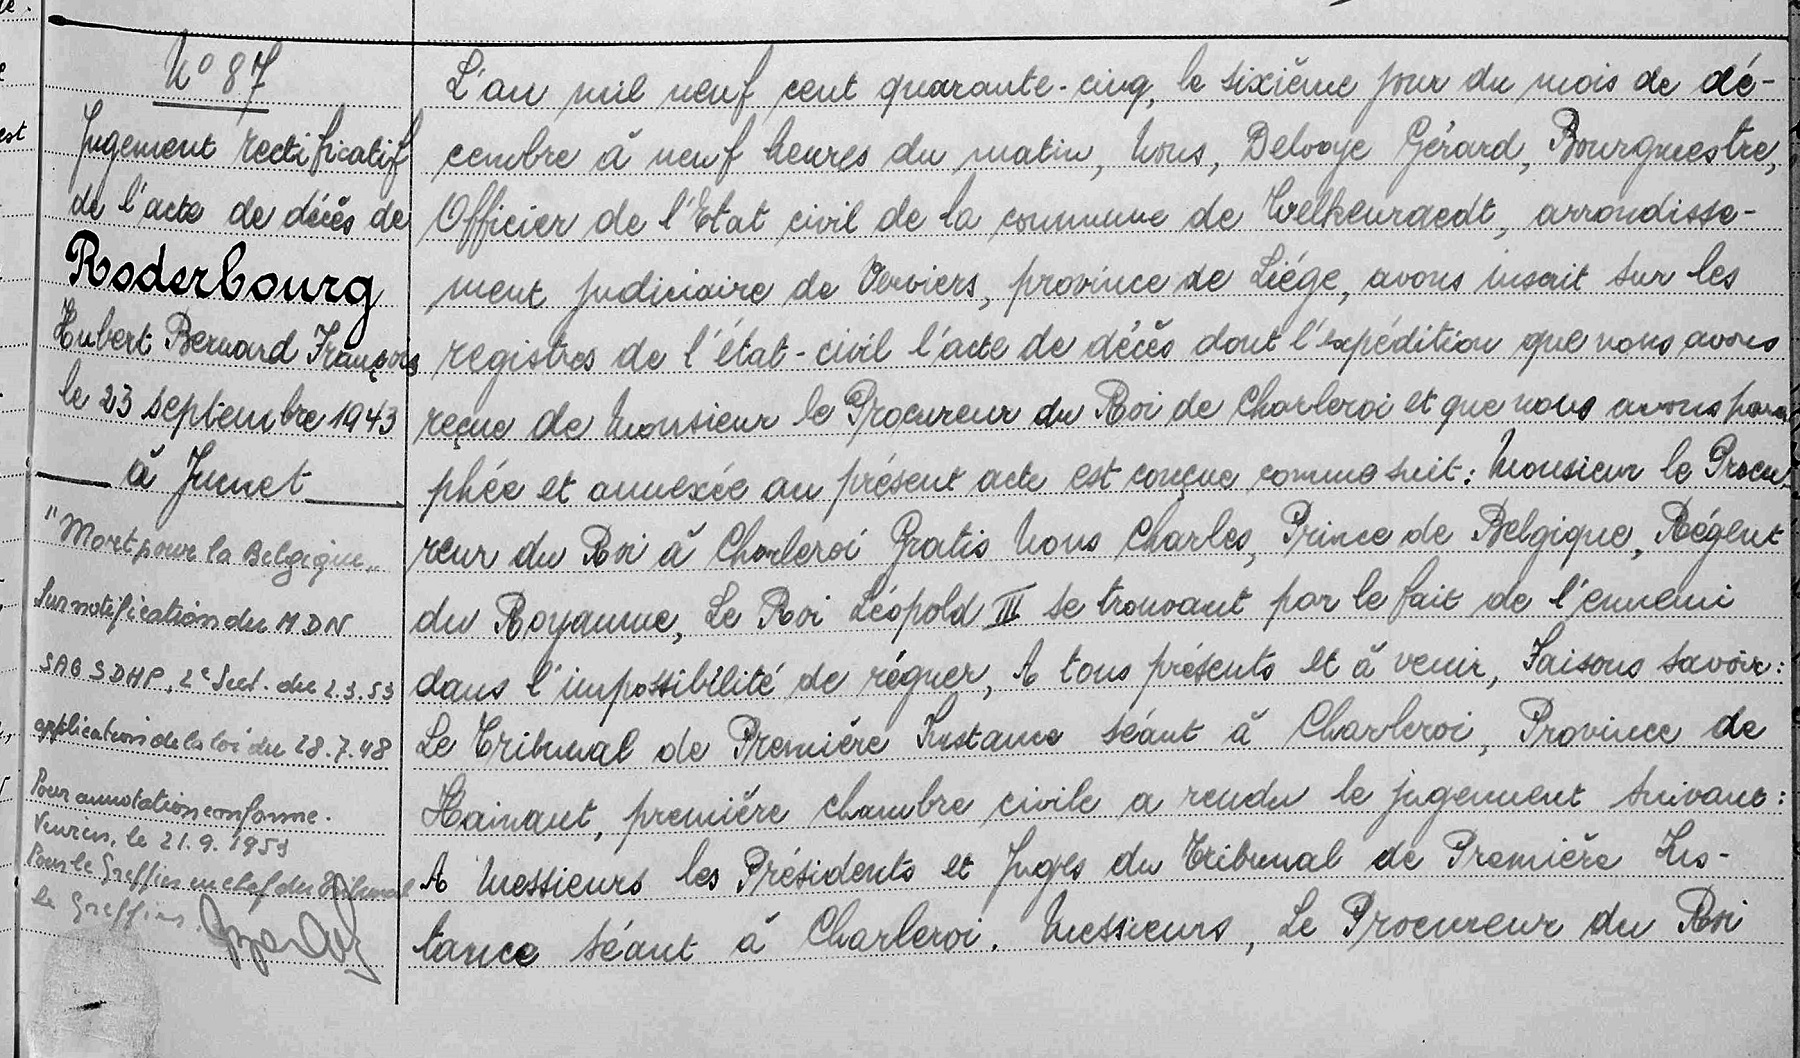 N° 87
Jugement rectificatif
de l'acte de décès de
Roderbourg
Hubert Bernard François
le 23 septembre 1943
à Jumet
"Mort pour la Belgique"
Sur notification du MDN
SAB SDHP, 2e Sect. du 2.3.53
application de la loi du 28.7.48
Pour annotation conforme.
le 21.9.1953
Pour le Greffier en chef du Tribunal
le Greffier,
L'an mil neuf cent quarante-cinq, le sixième jour du mois de dé-
cembre à neuf heures du matin, Nous, Delvoye Gérard, Bourgmestre,
Officier de l'Etat civil de la commune de Welkenraedt, arrondisse-
ment judiciaire de Verviers, province de Liége, avons inscrit sur les
registres de l'état-civil l'acte de décès dont l'expédition que nous avons
reçue de Monsieur le Procureur du Roi de Charleroi et que nous avons para-
phée et annexée au présent acte est conçue comme suit: Monsieur le Procu-
reur du Roi à Charleroi Gratis Nous Charles, Prince de Belgique, Régent
du Royaume, Le Roi Léopold III se trouvant par le fait de l'ennemi
dans l'impossibilité de régner, A tous présents et à venir, Faisons savoir:
Le Tribunal de Première Instance séant à Charleroi, Province de
Hainaut, première chambre civile a rendu le jugement suivant:
A Messieurs les Présidents et Juges du Tribunal de Première Ins-
tance séant à Charleroi. Messieurs, Le Procureur du Roi